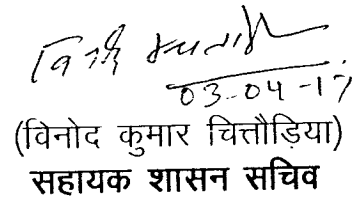 03-04-17
(विनोद कुमार चित्तौड़िया)
सहायक शासन सचिव